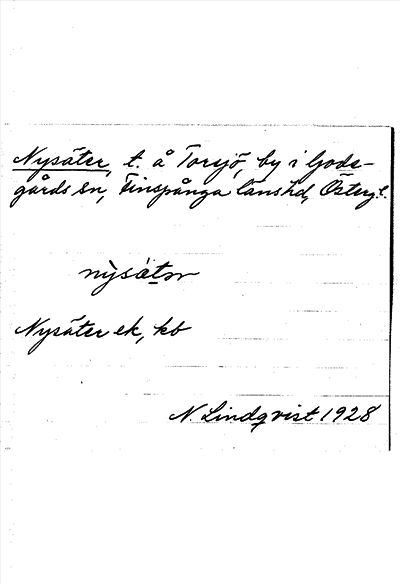 Nysäter, t. å Torsjö, by i Gods-
gårds sn, Finspånga läns hd, Österg.
nỳsä̀tər
Nysäter ek, kb
N. Lindqvist 1928